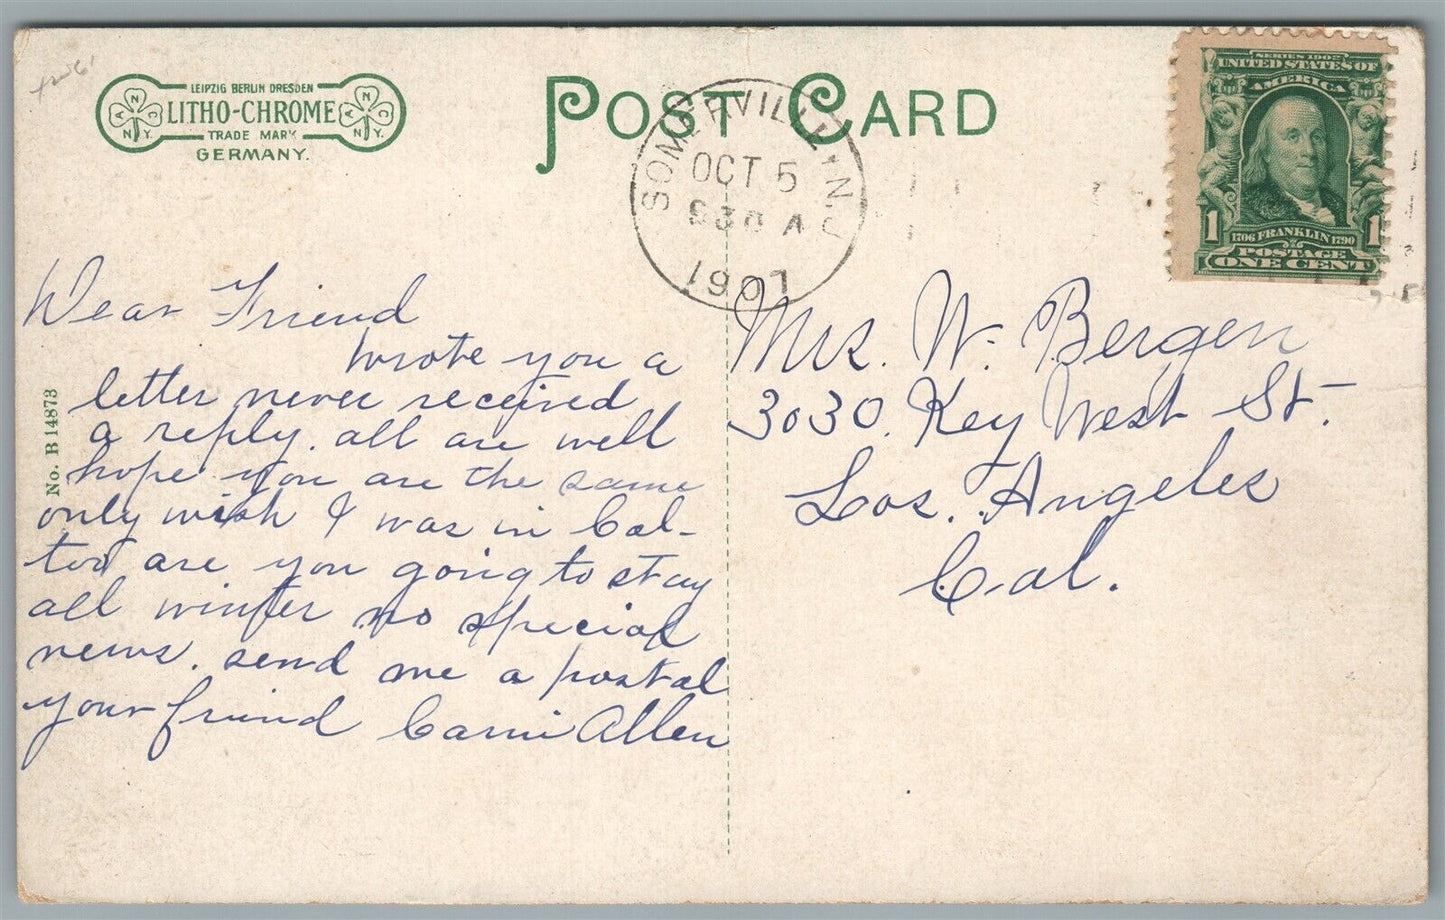 LEIPZIG BERLIN DRESDEN
LITHO-CHROME
TRADE MARK
GERMANY.
A N C N.Y.
A N C N.Y.
POST CARD
SOMERVILLE, N.J.
OCT 5
930 A
1907
SERIES 1902
UNITED STATES OF
AMERICA
1 1
1706 FRANKLIN 1790
POSTAGE
ONE CENT
No. B 14873
Dear Friend
Wrote you a
letter never received
a reply. all are well
hope you are the same
only wish I was in Cal-
too are you going to stay
all winter no special
news. send me a postal
your friend Carrie Allen
Mrs. W. Bergen
3030. Key West St.
Los. Angeles
Cal.